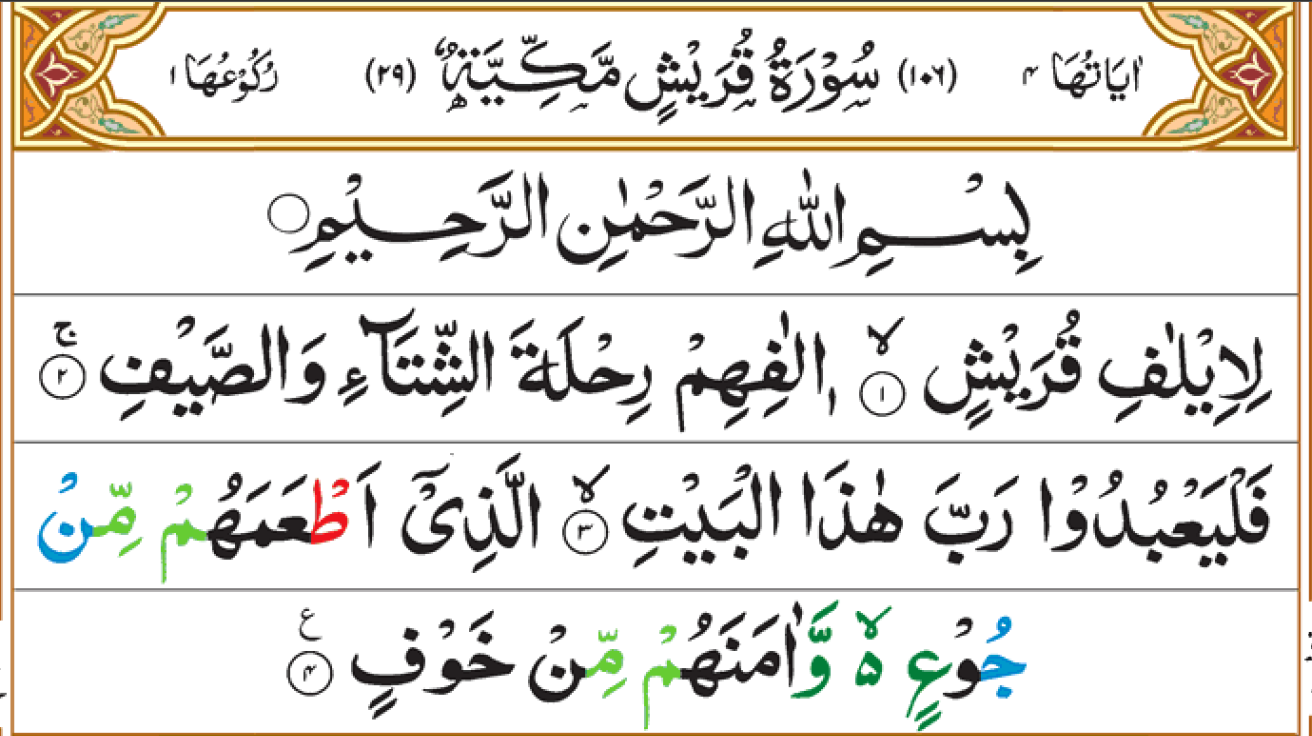 اٰيَاتُهَا ۴ (۱۰۶) سُوْرَةُ قُرَيْشٍ مَّكِّيَّةٌ (۲۹) رُكُوْعُهَا ۱
بِسْمِ اللّٰهِ الرَّحْمٰنِ الرَّحِيْمِ
لِاِيْلٰفِ قُرَيْشٍ ۙ‏ ۱ اٖلٰفِهِمْ رِحْلَةَ الشِّتَآءِ وَالصَّيْفِ ۚ‏ ۲
فَلْيَعْبُدُوْا رَبَّ هٰذَا الْبَيْتِ ۙ‏ ۳ الَّذِىْٓ اَطْعَمَهُمْ مِّنْ
جُوْعٍ ۙ۵ وَّاٰمَنَهُمْ مِّنْ خَوْفٍ ۴ ع